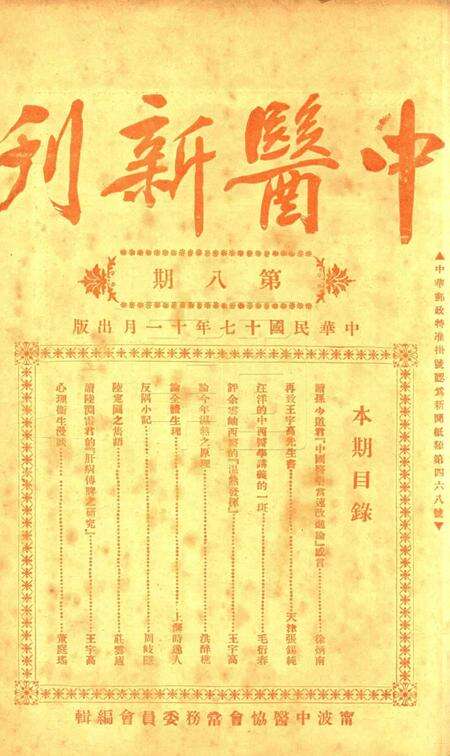 中醫新刊
第八期
中華民國十七年十一月出版
▲中華郵政特准掛號認爲新聞紙類第四六八號▼
本期目錄
讀孫少道君『中國醫學當速改進論』感言 徐炳南
再致王宇高先生書 天津張錫純
汪洋的中西醫學講義的一斑 毛衍春
評余雲岫西醫的『溫熱發揮』 王宇高
論今年溫熱之原理 洪醉樵
論全體生理 上優時逸人
反隅小記 周岐隱
陸定圃之舊語 莊雲廬
讀陸淵雷君的『肝病傳脾之研究』 王宇高
心理衛生漫談 董庭瑤
甯波中醫協會常務委員會編輯